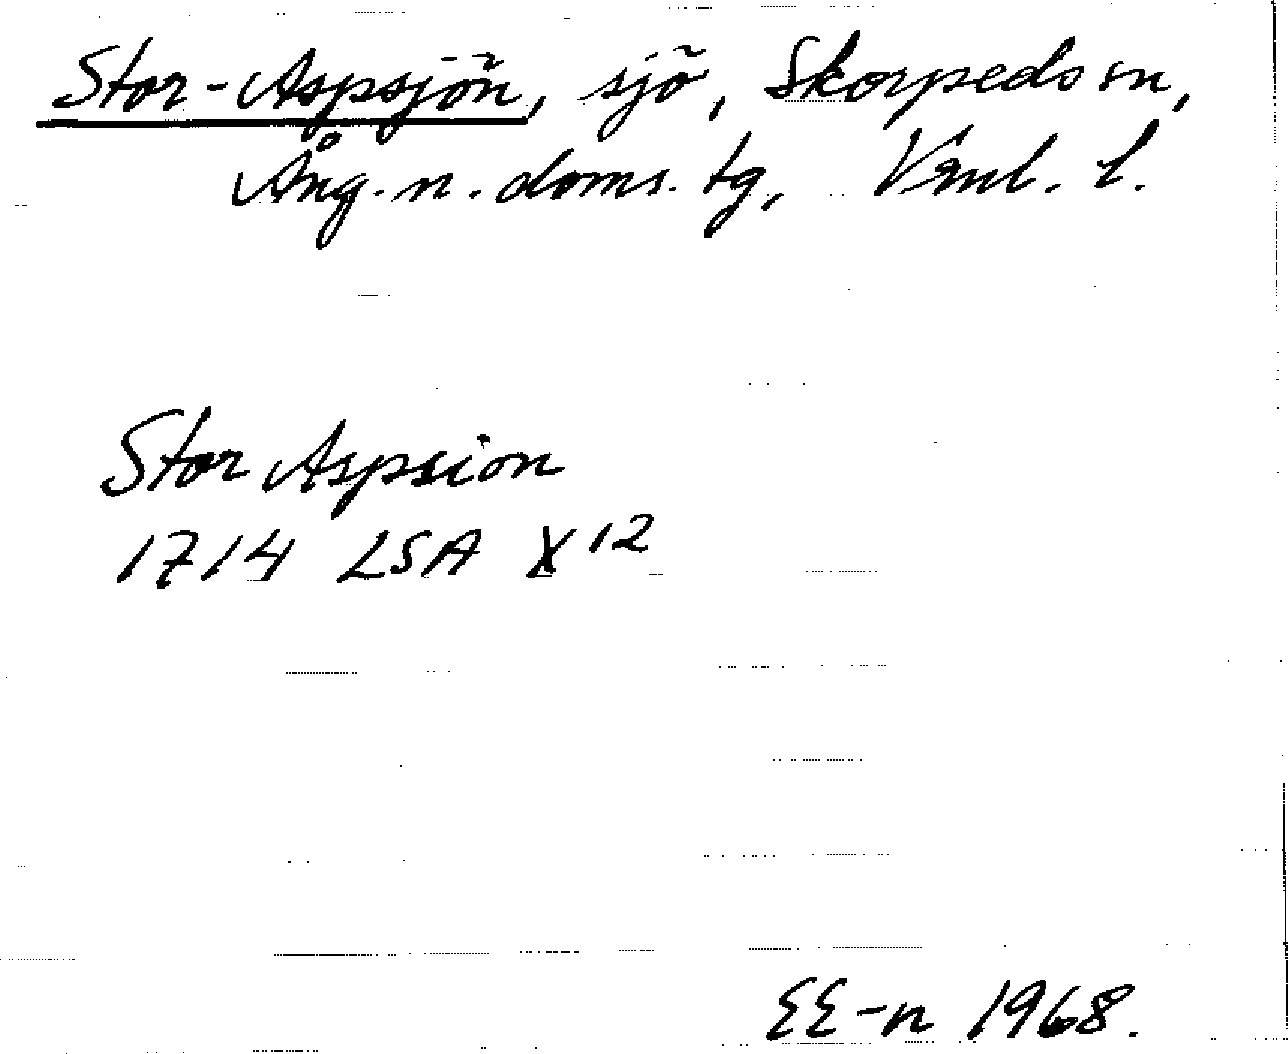 Stor-Aspsjön, sjö, Skorpeds sn,
Ång. n. doms. tg, Vnl. l.
Stor Aspsion
1714 LSA X 12
EE-n 1968.